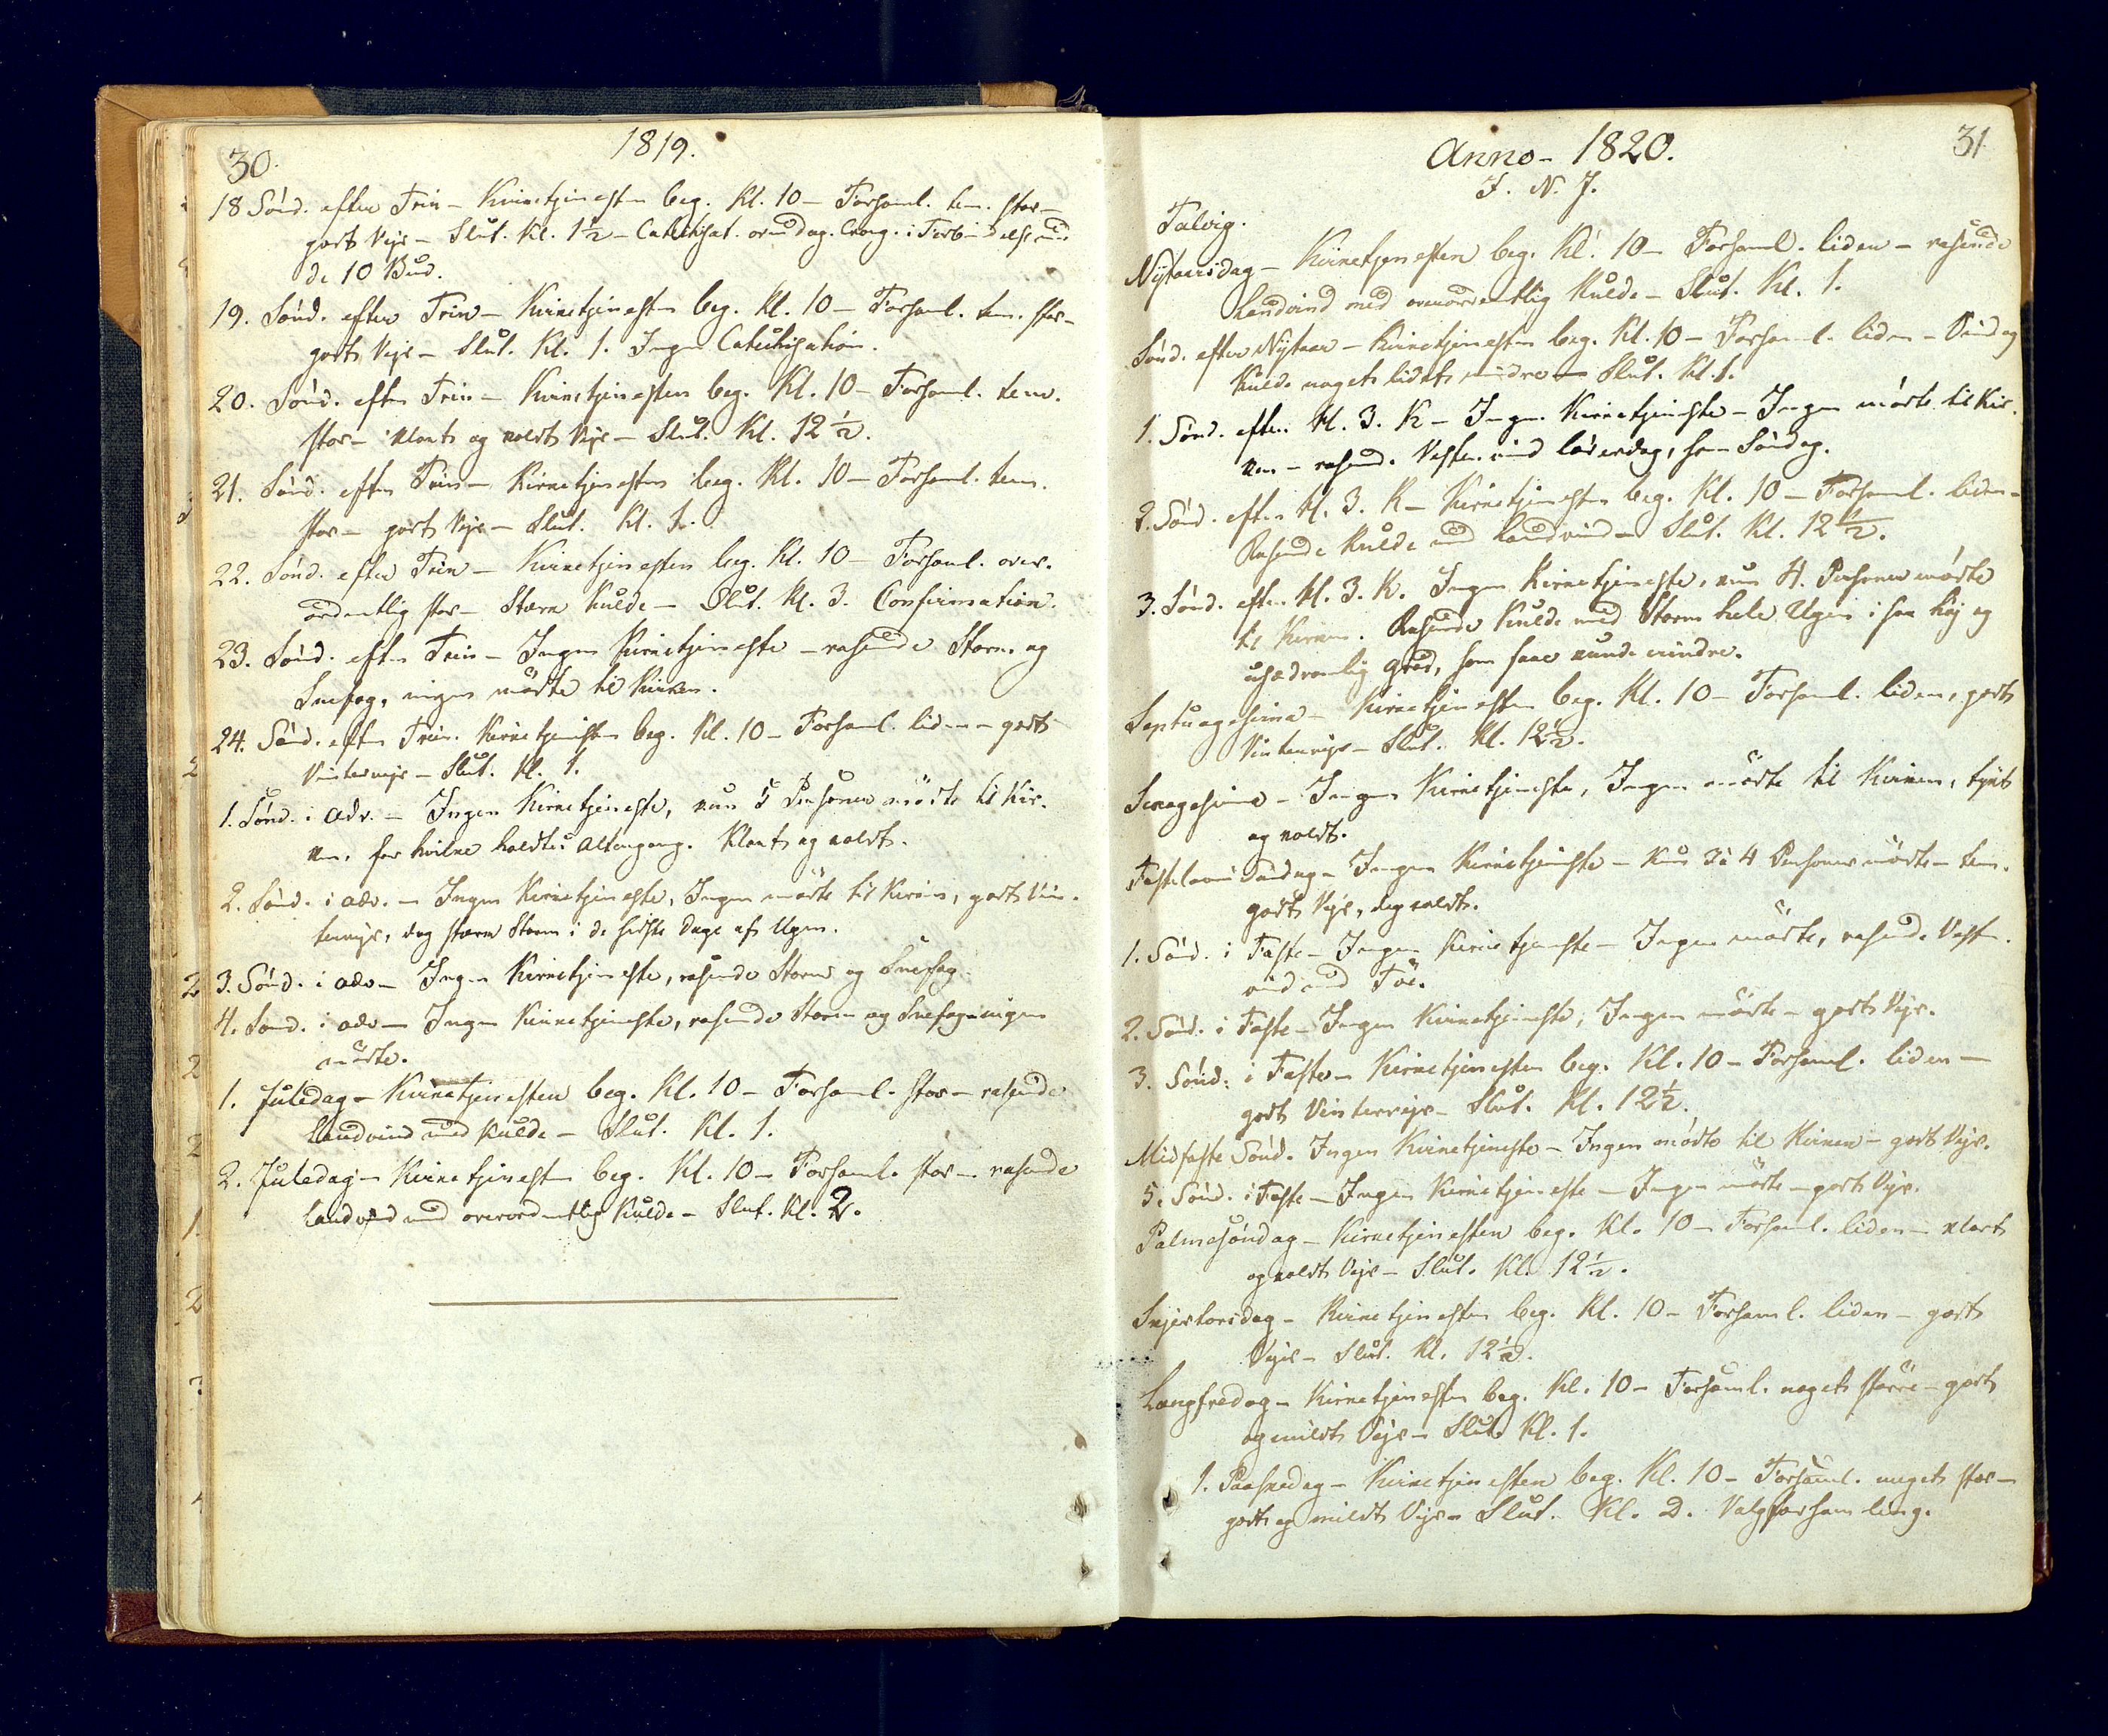 30.
1819.
18 Sönd. efter Trin - Kirketjenesten beg. Kl. 10 - Forsaml. tem. stor -
godt Vejr - Slut. Kl. 1½ - Catechisat. over d. ag. Evang. i Forbindelse med
de 10 Bud.
19. Sönd. efter Trin - Kirketjenesten beg. Kl. 10 - Forsaml. tem. stor -
godt Vejr - Slut. Kl. 1. Ingen Catechisation.
20. Sönd. efter Trin - Kirketjenesten beg. Kl. 10 - Forsaml. tem.
stor - klart og koldt Vejr - Slut. Kl. 12½.
21. Sönd. efter Trin - Kirketjenesten beg. Kl. 10 - Forsaml. tem.
stor - godt Vejr - Slut. Kl. 1.
22. Sönd. efter Trin - Kirketjenesten beg. Kl. 10 - Forsaml. over-
ordentlig stor - Stærk Kulde - Slut. Kl. 3. Confirmation.
23. Sönd. efter Trin - Ingen Kirketjeneste - rasende Storm og
Snefog, ingen mödte til Kirken.
24. Sönd. efter Trin. Kirketjenesten beg. Kl. 10 - Forsaml. liden - godt
Vintervejr - Slut. Kl. 1.
1. Sönd. i Adv. - Ingen Kirketjeneste, kun 5 Personer mödte til Kir-
ken, for hvilke holdtes Altergang. Klart og koldt.
2. Sönd. i Adv. - Ingen Kirketjeneste, Ingen mödte til Kirken, godt Vin-
tervejr, dog stærk Storm i de sidste Dage af Ugen.
3. Sönd. i Adv - Ingen Kirketjeneste, rasende Storm og Snefog.
4. Sönd. i Adv - Ingen Kirketjeneste, rasende Storm og Snefog - ingen
mödte.
1. Juledag - Kirketjenesten beg. Kl. 10 - Forsaml. stor - rasende
Landvind med Kulde - Slut. Kl. 1.
2. Juledag - Kirketjenest beg. Kl. 10 - Forsaml. stor - rasende
Landvind med overordentlig Kulde - Slut. Kl. 2.
31
Anno - 1820.
I. N. J.
Talvig.
Nytaarsdag - Kirketjenesten beg. Kl. 10 - Forsaml. liden - rasende
Landvind med overordentlig Kulde - Slut. Kl. 1.
Sönd. efter Nytaar - Kirketjenesten beg. Kl. 10 - Forsaml. liden - Vind og
Kulde noget lidet mindre - Slut. Kl. 1.
1. Sönd. efter H. 3. K - Ingen Kirketjeneste - Ingen mödte til Kir-
ken - rasende Vestenvind Löverdag, som Söndag.
2. Sönd. efter H. 3. K - Kirketjenesten beg. Kl. 10 - Forsaml. liden -
Rasende Kulde med Landvind - Slut. Kl. 12½.
3. Sönd. efter H. 3. K. Ingen Kirketjeneste, kun 4. Personer mödte
til Kirken. Rasende Kulde med Storm hele Ugen i saa høj og
usædvanlig Grad, som faae kunde mindre.
Septuagesima - Kirketjenesten beg. Kl. 10 - Forsaml. liden, godt
Vintervejr - Slut. Kl. 12½.
Sexagesima - Ingen Kirketjeneste, Ingen mödte til Kirken, tykt
og koldt.
Fastelavns Söndag - Ingen Kirketjeneste - Kun 3 à 4 Personer mödte - tem.
godt Vejr, dog koldt.
1. Sönd. i Faste - Ingen Kirketjeneste - Ingen mödte, rasende Vesten-
vind med Töe.
2. Sönd. i Faste - Ingen Kirketjeneste, Ingen mödte - godt Vejr.
3. Sönd. i Faste - Kirketjenesten beg. Kl. 10 - Forsaml. liden -
godt Vintervejr - Slut. Kl. 12½.
Midfaste Sönd. Ingen Kirketjeneste - Ingen mödte til Kirken - godt Vejr.
5. Sönd. i Faste - Ingen Kirketjeneste - Ingen mödte - godt Vejr.
Palmesöndag - Kirketjenesten beg. Kl. 10 - Forsaml. liden - klart
og koldt Vejr - Slut. Kl. 12½.
Skjertorsdag - Kirketjenesten beg. Kl. 10 - Forsaml. liden - godt
Vejr - Slut. Kl. 12½.
Langfredag - Kirketjenesten beg. Kl. 10 - Forsaml. noget större - godt
og mildt Vejr - Slut. Kl. 1.
1. Paaskedag - Kirketjenesten beg. Kl. 10 - Forsaml. meget stor -
godt og mildt Vejr - Slut. Kl. 2. Valgforsamling.